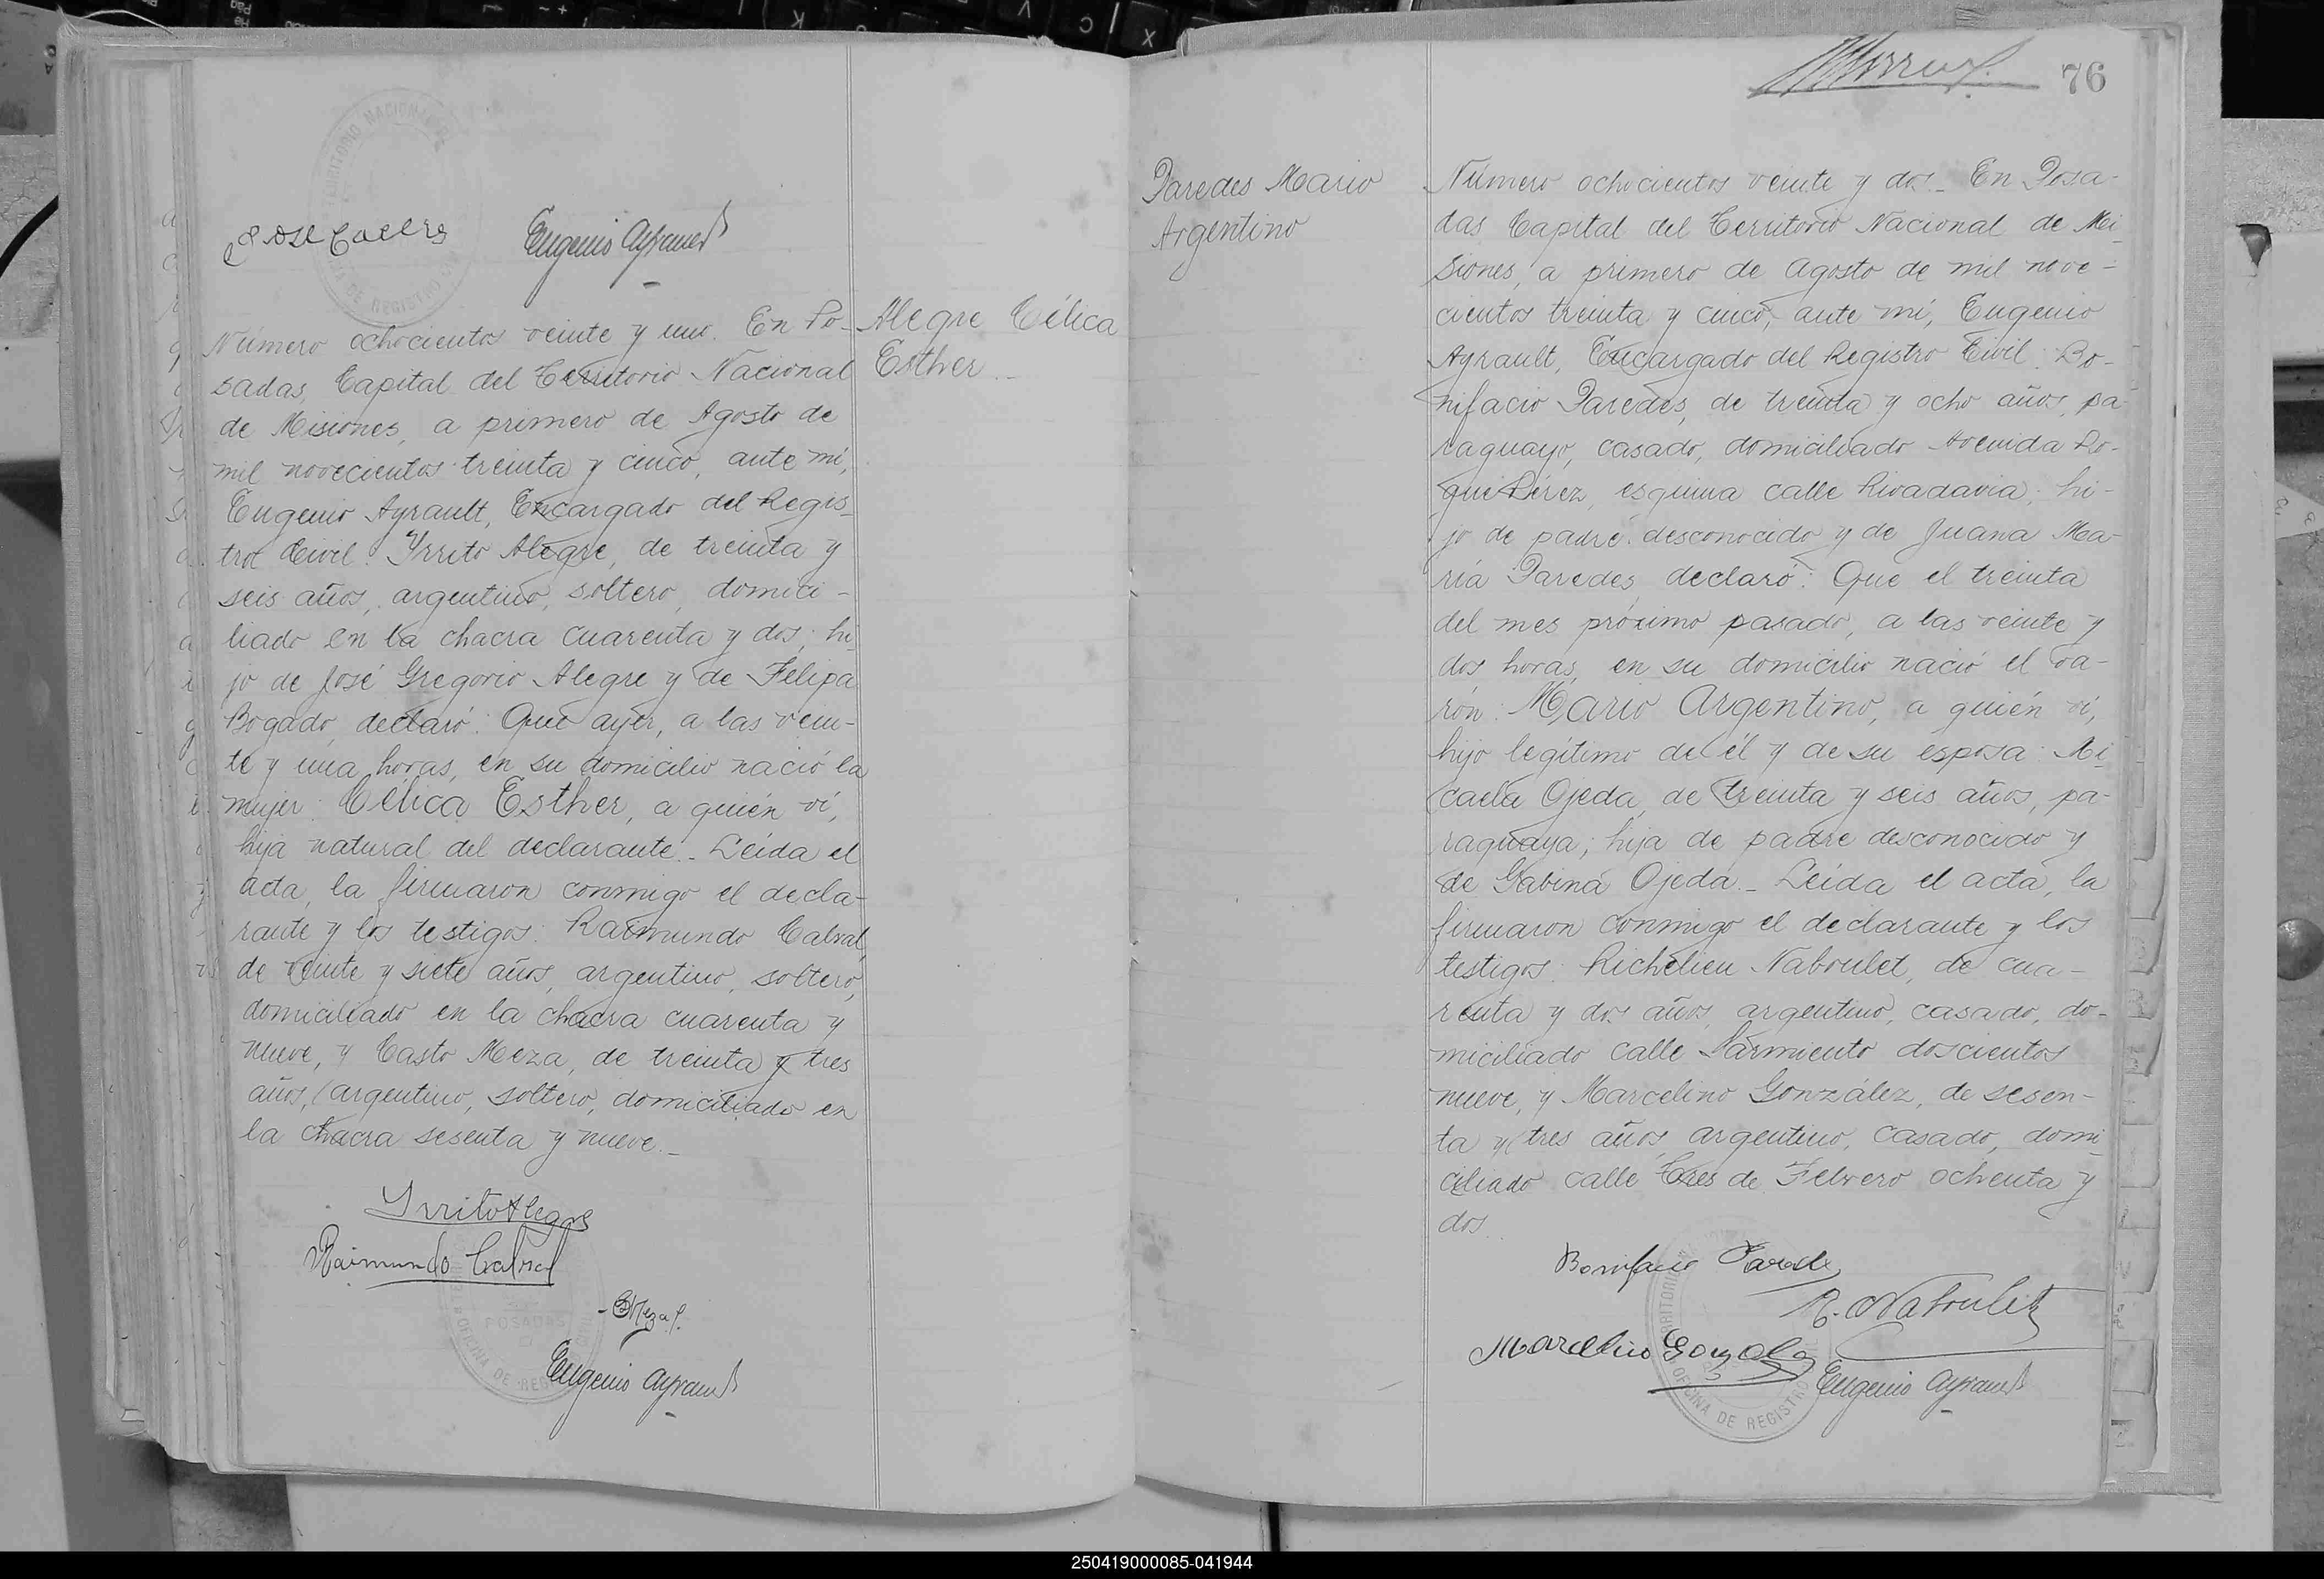 Eugenio Ayrault
Número ochocientos veinte y uno. En Po-
sadas, Capital del Territorio Nacional
de Misiones, a primero de Agosto de
mil novecientos treinta y cinco, ante mí,
Eugenio Ayrault, Encargado del Regis-
tro Civil: Yrrito Alegre, de treinta y
seis años, argentino, soltero, domici-
liado en la chacra cuarenta y dos; hi-
jo de José Gregorio Alegre y de Felipa
Bogado, declaró: Que ayer, a las vein-
te y una horas, en su domicilio nació la
mujer: Célica Esther, a quién ví,
hija natural del declarante._ Leída el
acta, la firmaron conmigo el decla-
rante y los testigos: Raimundo Cabral,
de veinte y siete años, argentino, soltero,
domiciliado en la chacra cuarenta y
nueve, y Casto Meza, de treinta y tres
años, argentino, soltero, domiciliado en
la chacra sesenta y nueve._
Alegre Célica
Esther._
Yrrito Alegre
Raimundo Cabral
POSADAS
OFICINA DE REGISTRO CIVIL
Eugenio Ayrault
76
Paredes Mario
Argentino
Número ochocientos veinte y dos._ En Posa-
das Capital del Territorio Nacional de Mi-
siones, a primero de Agosto de mil nove-
cientos treinta y cinco, ante mí, Eugenio
Ayrault, Encargado del Registro Civil: Bo-
nifacio Paredes, de treinta y ocho años, pa-
raguayo, casado, domiciliado Avenida Ro-
que Pérez, esquina calle Rivadavia; hi-
jo de padre desconocido y de Juana Ma-
ría Paredes, declaró: Que el treinta
del mes próximo pasado, a las veinte y
dos horas, en su domicilio nació el va-
rón: Mario Argentino, a quién ví,
hijo legítimo de él y de su esposa: Mi-
caela Ojeda, de treinta y seis años, pa-
raguaya; hija de padre desconocido y
de Gabina Ojeda._ Leída el acta, la
firmaron conmigo el declarante y los
testigos: Richelieu Naboulet, de cua-
renta y dos años, argentino, casado, do-
miciliado calle Sarmiento doscientos
nueve, y Marcelino González, de sesen-
ta y tres años, argentino, casado, domi-
ciliado calle Tres de Febrero ochenta y
dos.
Bonifacio Parede
R. Naboulet
Marcelino Gonzalez
Eugenio Ayrault
OFICINA DE REGISTRO
250419000085-041944